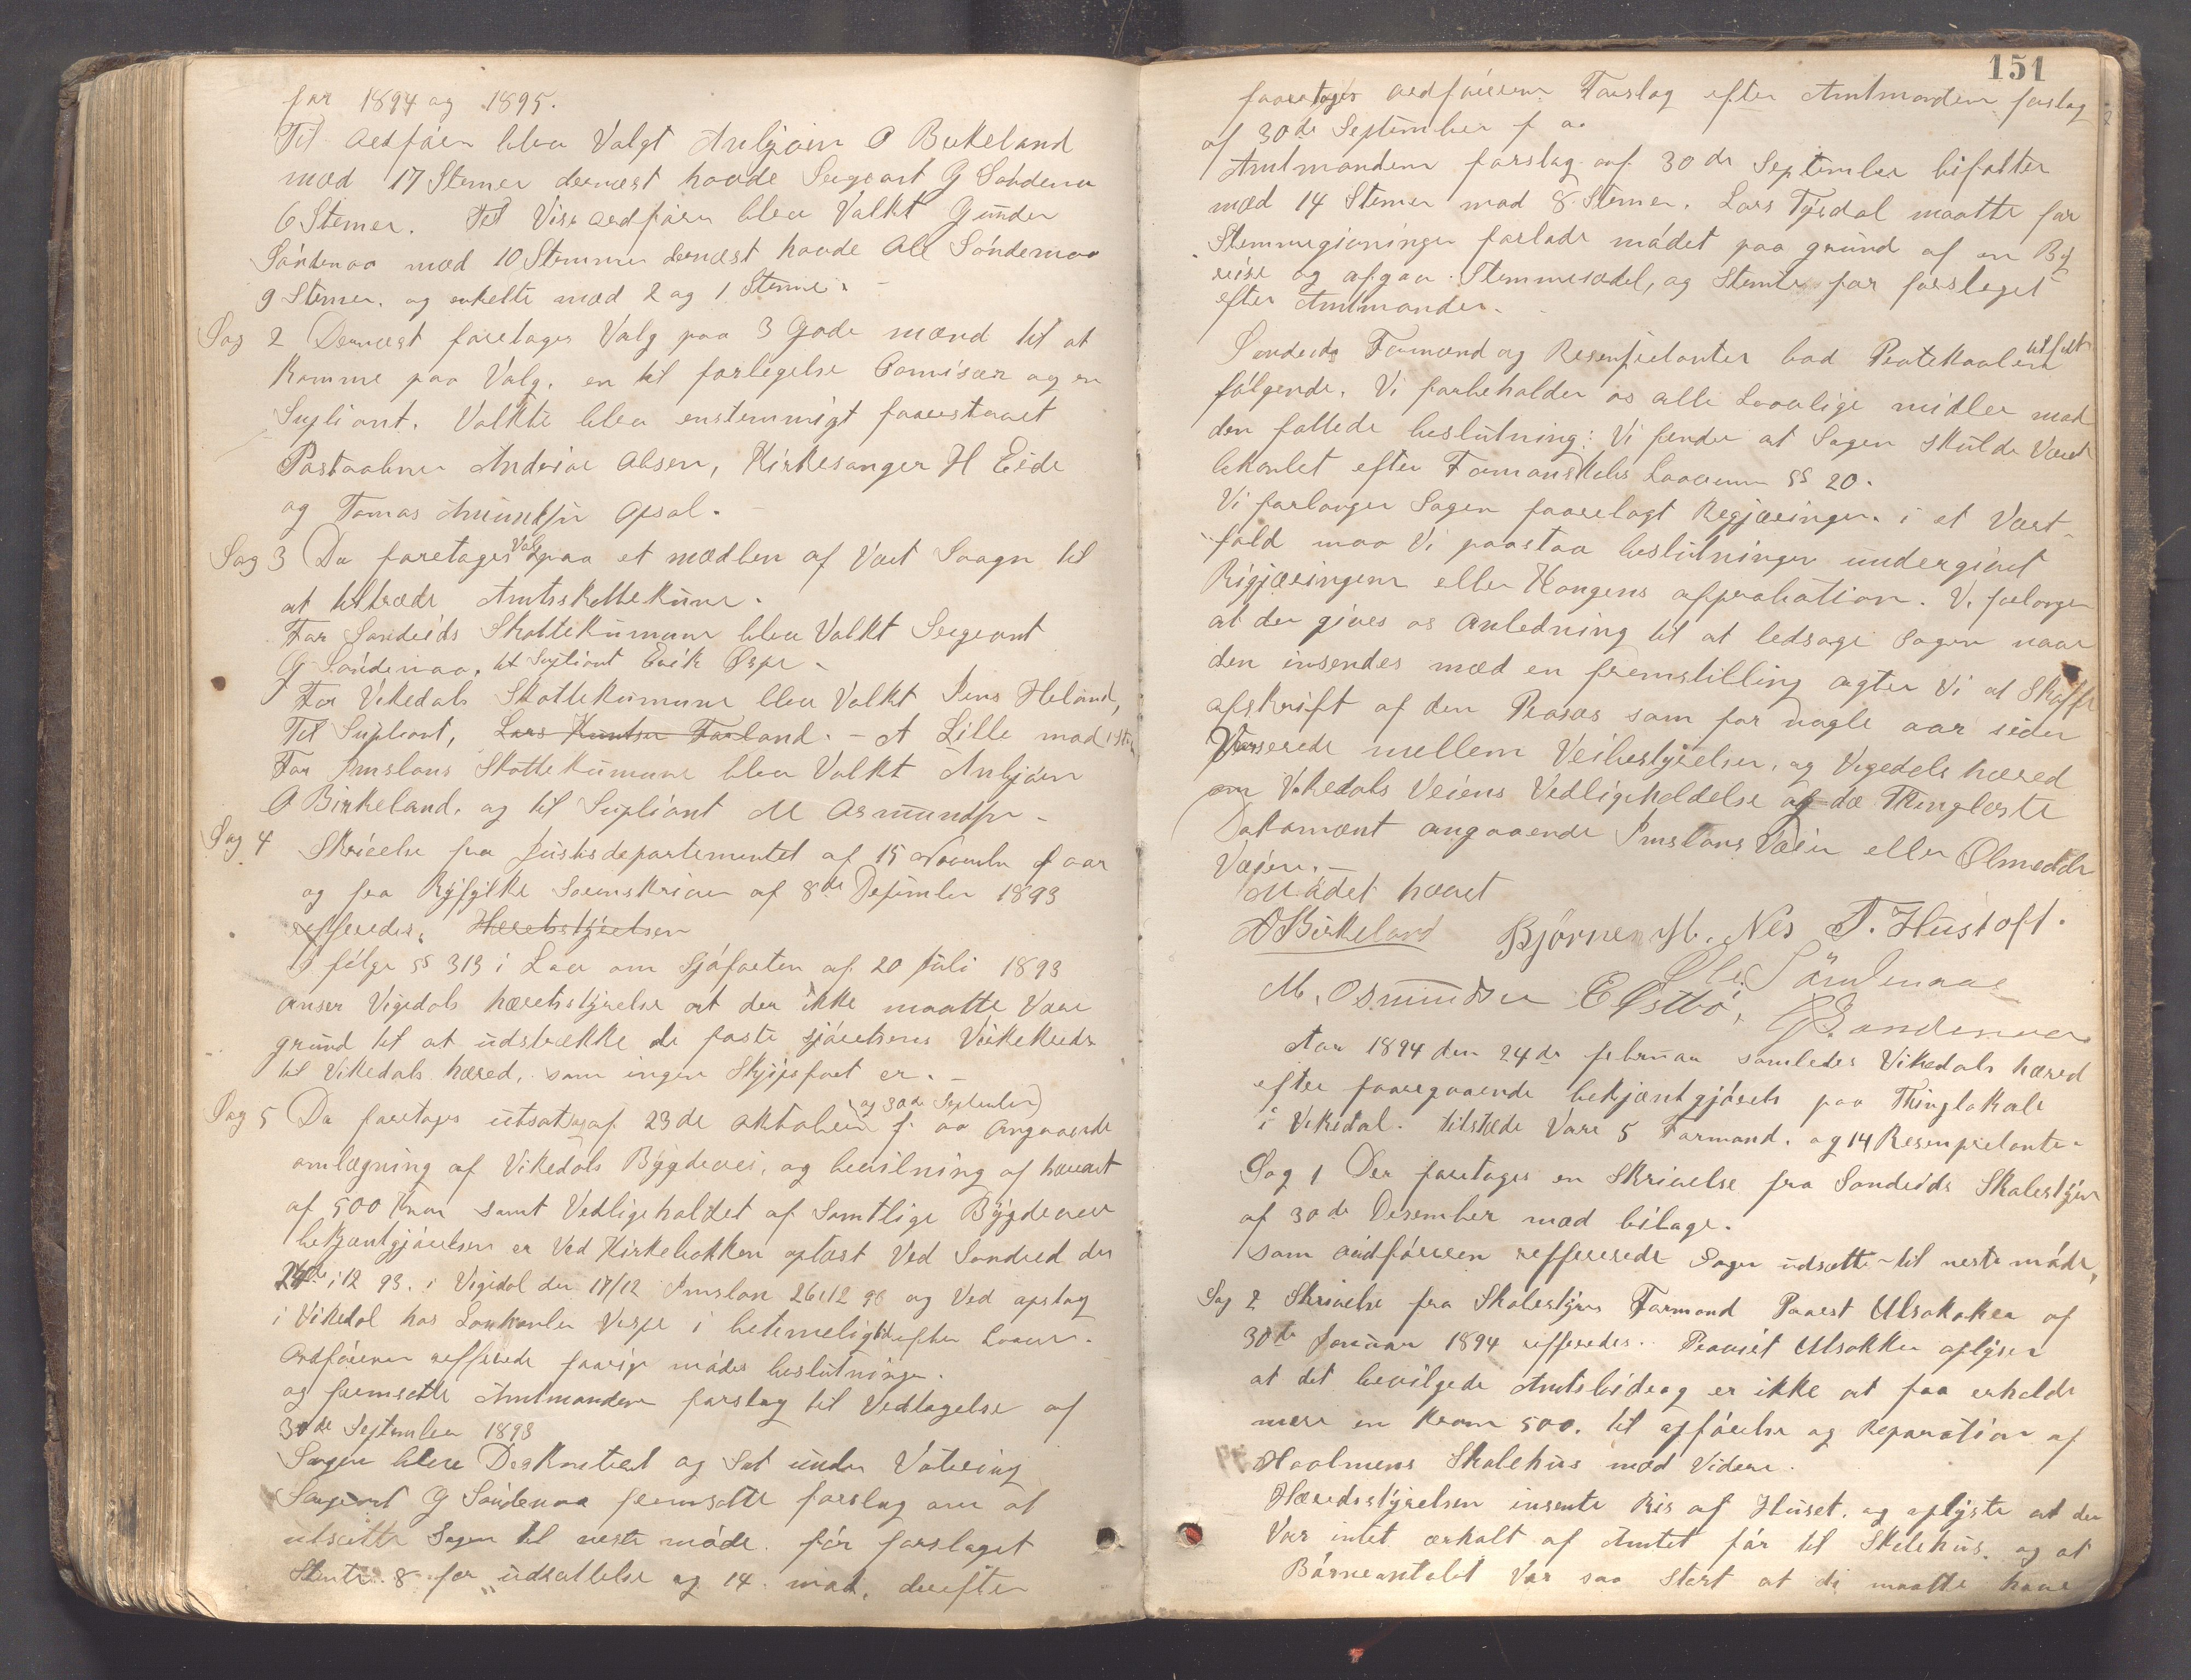 for 1894 og 1895.
Til Ordfører blev Valgt Anbjørn O Birkeland
mæd 17 Stemer dernæst havde Sergeant G Søndenaa
6 Stemer. Til Viseordfører blev Valkt Gunder
Søndenaa mæd 10 Stemmer dernæst havde Ole Søndenaa
9 Stemer. og enkelte mæd 2 og 1 Steme. -
Sag 2 Dernæst foretages Valg paa 3 Gode mænd til at
komme paa Valg. en til forligelse Comisær og en
Supliant. Valkte blev enstemmigt faarestaaet
Postaabner Andreas Olsen, Kirkesanger H Eide
og Tomas Amundsn Opsal. -
Sag 3 Da foretages Valg paa et mædlem af Vært Saagn til
at tiltræde Amtsskattekumune.
For Sandeids Skattekumune blev Valkt Sergeant
G Søndenaa, til Supliant Erik Øspe -
For Vikedals Skattekumune blev Valkt Jens Heland,
Til Supleant, Lars Knutsen Farland. - A Lille mod 1 Stem
For Imslans Skattekumune blev Valkt Anbjørn
O Birkeland. og til Supliant M Osmundsn -
Sag 4 Skrivelse fra Justisdepartementet af 15 November f aar
og fra Ryfylke Sorenskriver af 8de Desember 1893
refferedes. Heredsstyrelsen
I følge §§ 313 i Lov om Sjøfarten af 20 Juli 1893
anser Vigedals hæretsstyrelse at der ikke maatte Være
grund til at udstrække de faste sjøretsens Virkekreds
til Vikedals hæred, som ingen Skjipsfart er. -
Sag 5 Da foretages utsatsag af 23de Oktober (og 30de September) f. aa angaaende
omlægning af Vikedals Bygdevei, og bevilning af hæredet
af 500 Kron samt Vedligeholdet af Samtlige Bygdeveier
bekjæntgjørelsen er Ved Kirkebakken oplæst Ved Sandeid den
24de i 12 93. i Vigedal den 17/12 Imslan 26/12 93 og Ved opslag
i Vikedal hos Lænkanler Vespe i betimelig tid efter Loven.
Ordføreren refferede faarige mødes beslutninger.
og fremsatte Amtmanden forslag til Vedtagelse af
30de September 1893
Sagen bleve Deskuteret og Sat under Votering
Sergeant G Søndenaa fremsatte forslag om at
utsætte Sagen til neste møde. før forslaget
Stemte 8 for udsættelse og 14 mod. derefter
151
faaretages ordførerens Forslag efter Amtmanden forslag
af 30de September f aa
Amtmandens forslag af 30de September bifaltes
mæd 14 Stemer mod 8 Stemer. Lars Tysdal maatte før
Stemmegivningen forlade mødet paa grund af en By
reise og afgav Stemmesædel, og Stemte for forslaget
efter Amtmanden.
Sandeids Formænd og Resenprelanter bad Protekaalen tilført
følgende. Vi forbeholder os alle Laavlige midler mod
den fattede beslutning: Vi finder at Sagen skulde Været
behanlet efter Formanskabs Laavenn §§ 20.
Vi forlanger Sagen faarelagt Regjæringen. i et Værst-
fald maa Vi paastaa beslutningen undergivet
Rigjæringenn eller Kongens approbation. Vi forlanger
at der gives os anledning til at ledsage Sagen naar
den insendes mæd en fremstilling agter Vi at Skaffe
afskrift af den Prosæs som for nogle aar siden
Verserede mellem Veibestyrelsen, og Vigedals hæred
om Vikedals Veiens Vedligeholdelse og de Thinglæste
Dokomænt angaaende Imslans Væien eller Ølmedals
Væien. -
Mødet hævet
O Birkeland Bjørne M. Nes T. Hustoft.
M. Osmundsen E Østbø, Ole Søndenaae
G Søndenaa
Aar 1894 den 24de februar samledes Vikedals hæred
efter faaregaaende bekjæntgjørels paa Thinglokale
i Vikedal. tilstæde Vare 5 Formænd. og 14 Resenprelanter
Sag 1 Der foretages en Skrivelse fra Sandeids Skolestyre
af 30de Desember mæd bilage.
som ordføreren reffererede Sagen udsætte til neste møde,
Sag 2 Skrivelse fra Skolestyres Formand Provst Ulsakaker af
30de Januar 1894 refferedes. Provst Ulsakker oplyser
at det bevilgede Amtsbidrag er ikke at faa erholde
mere en Kroner 500. til opførelse og Reparation af
Haalmens Skolehus mæd Videre.
Hæredsstyrelsen insente Ris af Huset. og oplyste at der
Var intet ærholt af Amtet før til Skolehus. og at
Børneantalet Var saa Stort at di maatte have